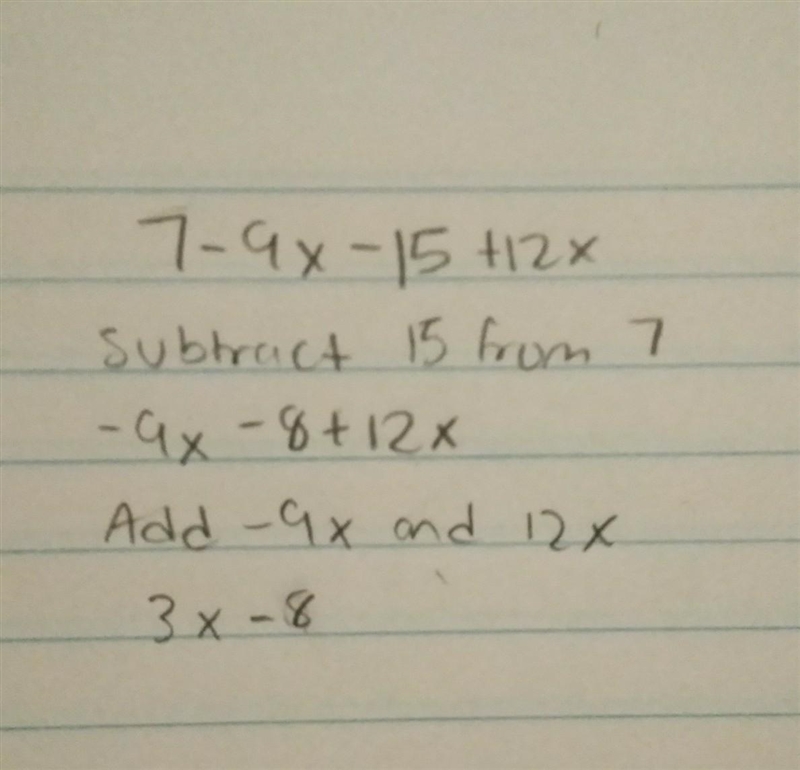 7-9x-15+12x
Subtract 15 from 7
-9x-8+12x
Add -9x and 12x
3x-8